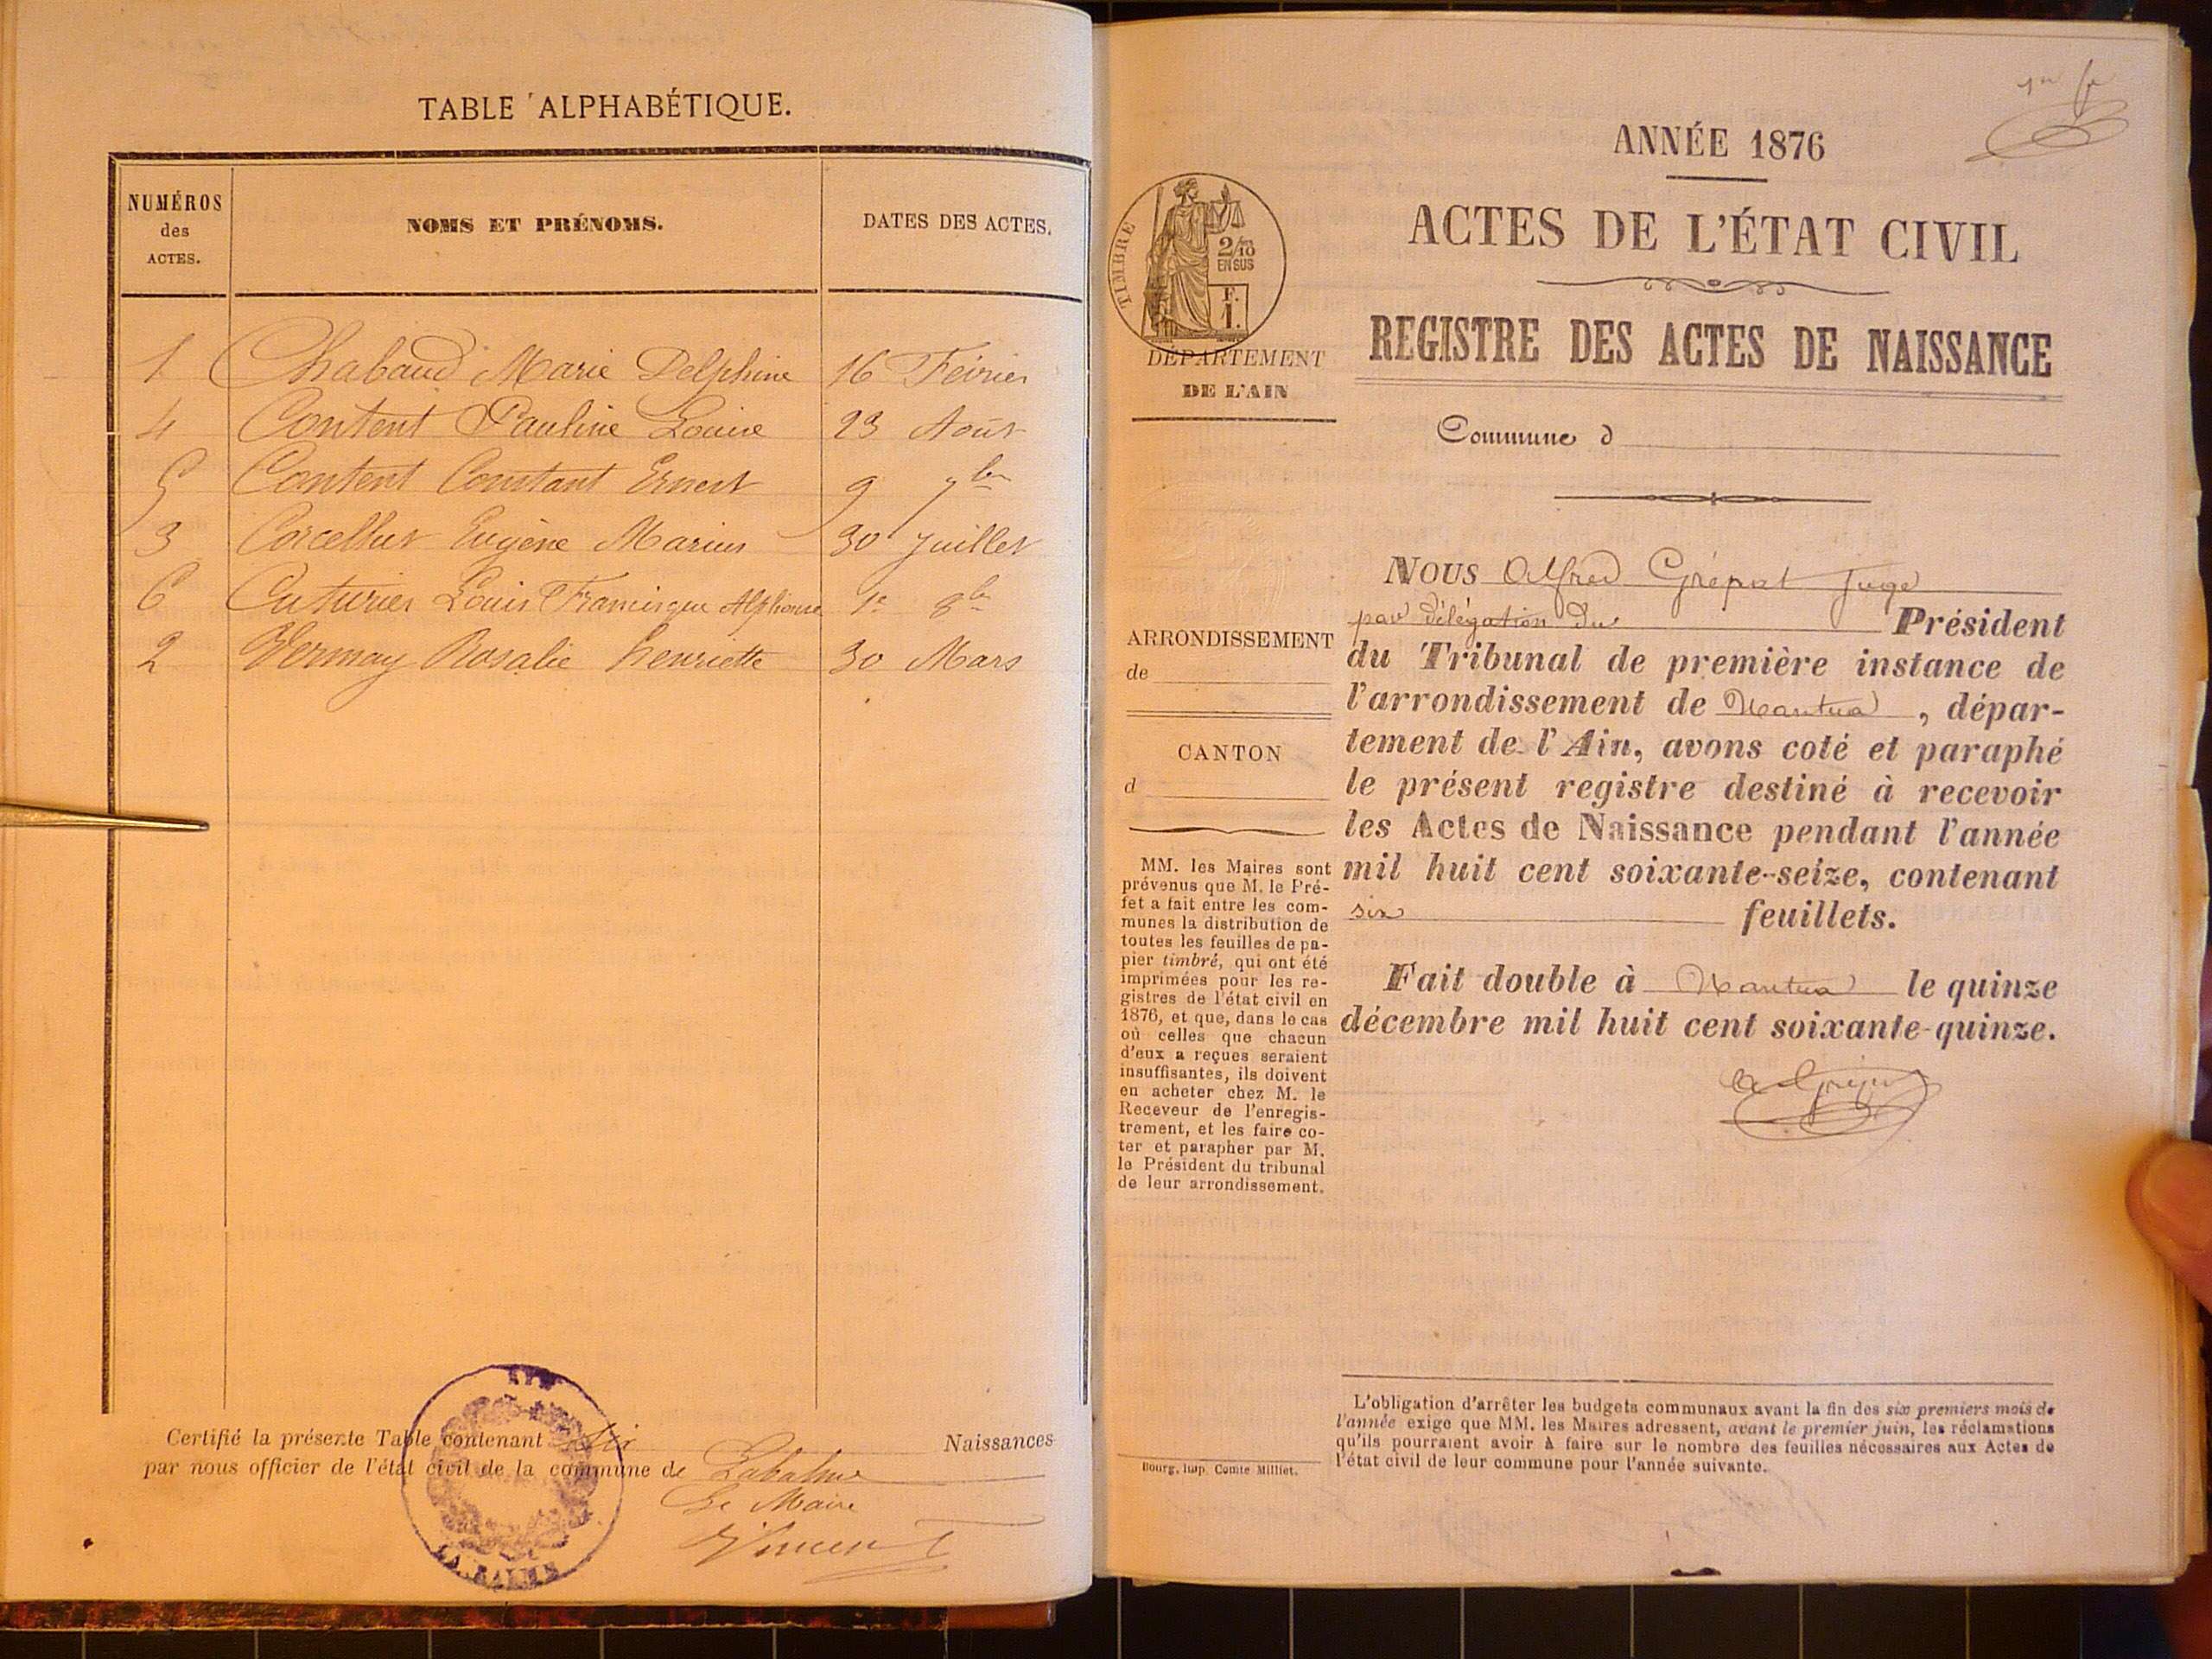 TABLE ALPHABÉTIQUE.
NUMÉROS
des
ACTES.
NOMS ET PRÉNOMS.
DATES DES ACTES.
1 Chabaud Marie Delphine 16 Février
4 Content Pauline Louise 23 Août
5 Content Constant Ernest 9 7bre
3 Corcellut Eugène Marius 30 Juillet
6 Cuturier Louis Francisque Alphonse 1er 8bre
2 Vermay Rosalie henriette 30 Mars
Certifié la présente Table contenant Six Naissances
par nous officier de l'état civil de la commune de Labalme
Le Maire
Vincent
LA BALME
ANNÉE 1876
ACTES DE L'ÉTAT CIVIL
REGISTRE DES ACTES DE NAISSANCE
TIMBRE
2/10
EN SUS
F.
1.
DÉPARTEMENT
DE L'AIN
Commune d
ARRONDISSEMENT
de
CANTON
d
MM. les Maires sont
prévenus que M. le Pré-
fet a fait entre les com-
munes la distribution de
toutes les feuilles de pa-
pier timbré, qui ont été
imprimées pour les re-
gistres de l'état civil en
1876, et que, dans le cas
où celles que chacun
d'eux a reçues seraient
insuffisantes, ils doivent
en acheter chez M. le
Receveur de l'enregis-
trement, et les faire co-
ter et parapher par M.
le Président du tribunal
de leur arrondissement.
NOUS Alfred Grépat Juge
par délégation du Président
du Tribunal de première instance de
l'arrondissement de Nantua, dépar-
tement de l'Ain, avons coté et paraphé
le présent registre destiné à recevoir
les Actes de Naissance pendant l'année
mil huit cent soixante-seize, contenant
six feuillets.
Fait double à Nantua le quinze
décembre mil huit cent soixante-quinze.
L'obligation d'arrêter les budgets communaux avant la fin des six premiers mois de
l'année exige que MM. les Maires adressent, avant le premier juin, les réclamations
qu'ils pourraient avoir à faire sur le nombre des feuilles nécessaires aux Actes de
l'état civil de leur commune pour l'année suivante.
Bourg, Imp. Comte Milliet.